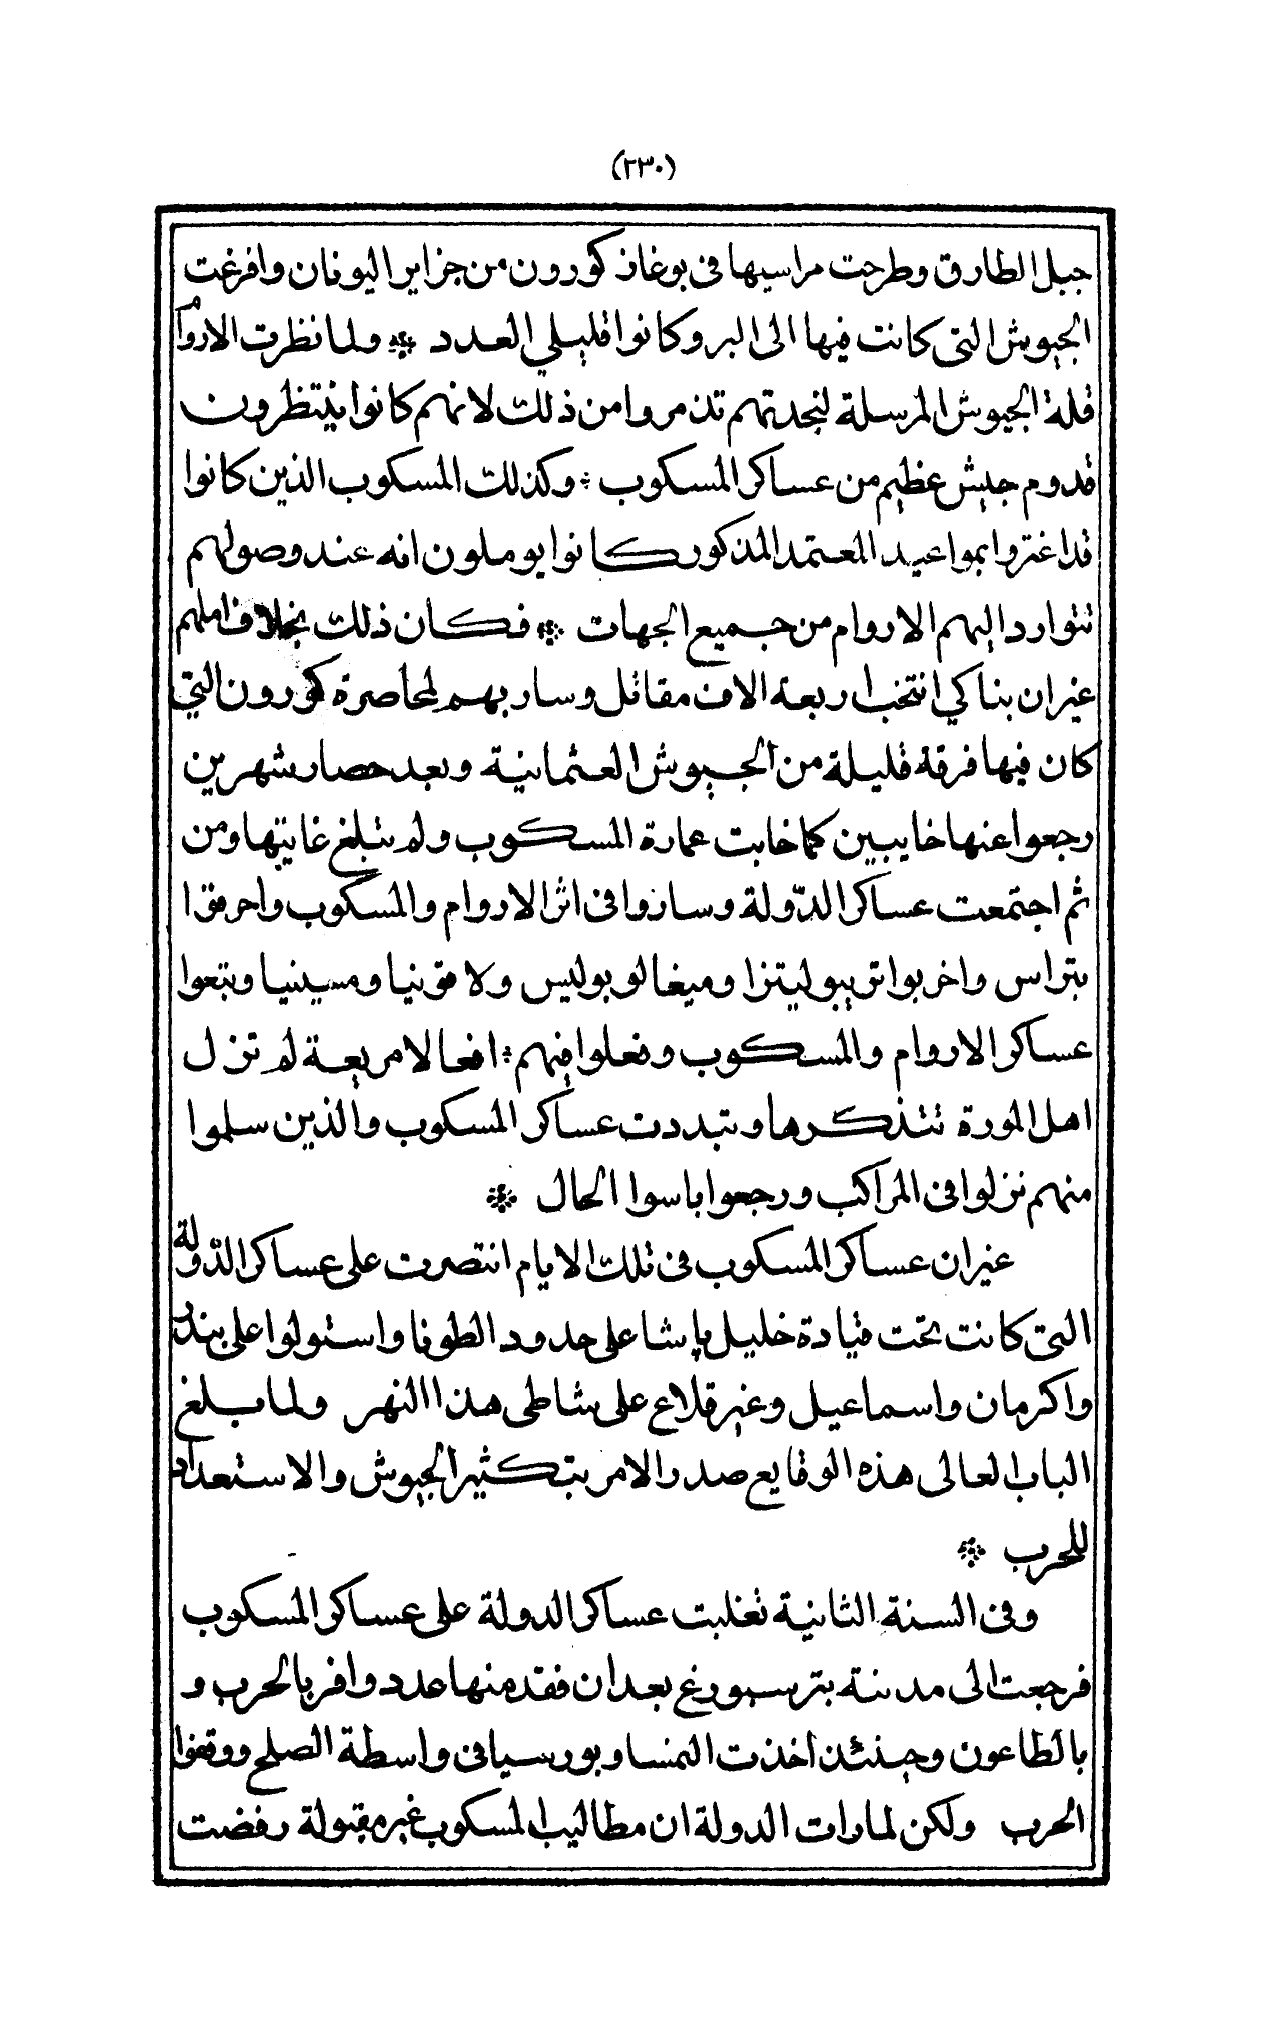 (٢٣٠)
جبل الطارق وطرحت مراسيها فى بوغاذ كورون من جزاير اليونان وافرغت
الجيوش التى كانت فيها الى البر وكانوا قليلي العدد ❊ ولما نظرت الاروام
قلة الجيوش المرسلة لنجدتهم تذمروا من ذلك لانهم كانوا ينتظرون
قدوم جيش عظيم من عساكر المسكوب ؛ وكذلك المسكوب الذين كانوا
قد اغتروا بمواعيد المعتمد المذكور كانوا يوملون انه عند وصولهم
تتوارد اليهم الاروام من جميع الجهات ❊ فكان ذلك بخلاف املهم
غير ان بناكي انتخب اربعة الاف مقاتل وسار بهم لمحاصرة كورون التي
كان فيها فرقة قليلة من الجيوش العثمانية وبعد حصار شهرين
رجعوا عنها خايبين كما خابت عمارة المسكوب ولم تبلغ غايتها ومن
ثم اجتمعت عساكر الدّولة وساروا فى اثر الاروام والمسكوب واحرقوا
بتراس واخربوا تريبوليتزا وميغالوبوليس ولاقونيا ومسينيا وتبعوا
عساكر الاروام والمسكوب وفعلوا فيهم ؛ افعالا مريعة لم تزل
اهل المورة تتذكرها وتبددت عساكر المسكوب والذين سلموا
منهم نزلوا فى المراكب ورجعوا باسوا الحال ❊
غير ان عساكر المسكوب فى تلك الايام انتصرت على عساكر الدّولة
التى كانت تحت قيادة خليل پاشا على حدود الطونا واستولوا على بندر
واكرمان واسماعيل وغير قلاع على شاطى هذا النهر ولما بلغ
الباب العالى هذه الوقايع صدر الامر بتكثير الجيوش والاستعداد
للحرب ❊
وفى السنة الثانية تغلبت عساكر الدولة على عساكر المسكوب
فرجعت الى مدينة بترسبورغ بعد ان فقد منها عدد وافر بالحرب و
بالطاعون وحينئذ اخذت النمسا وبورسيا فى واسطة الصلح ووقفوا
الحرب ولكن لما رات الدولة ان مطاليب المسكوب غير مقبولة رفضت